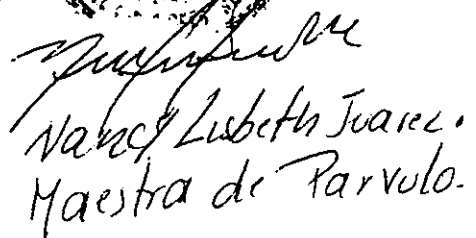 Nancy Lisbeth Juarez.
Maestra de Parvulo.